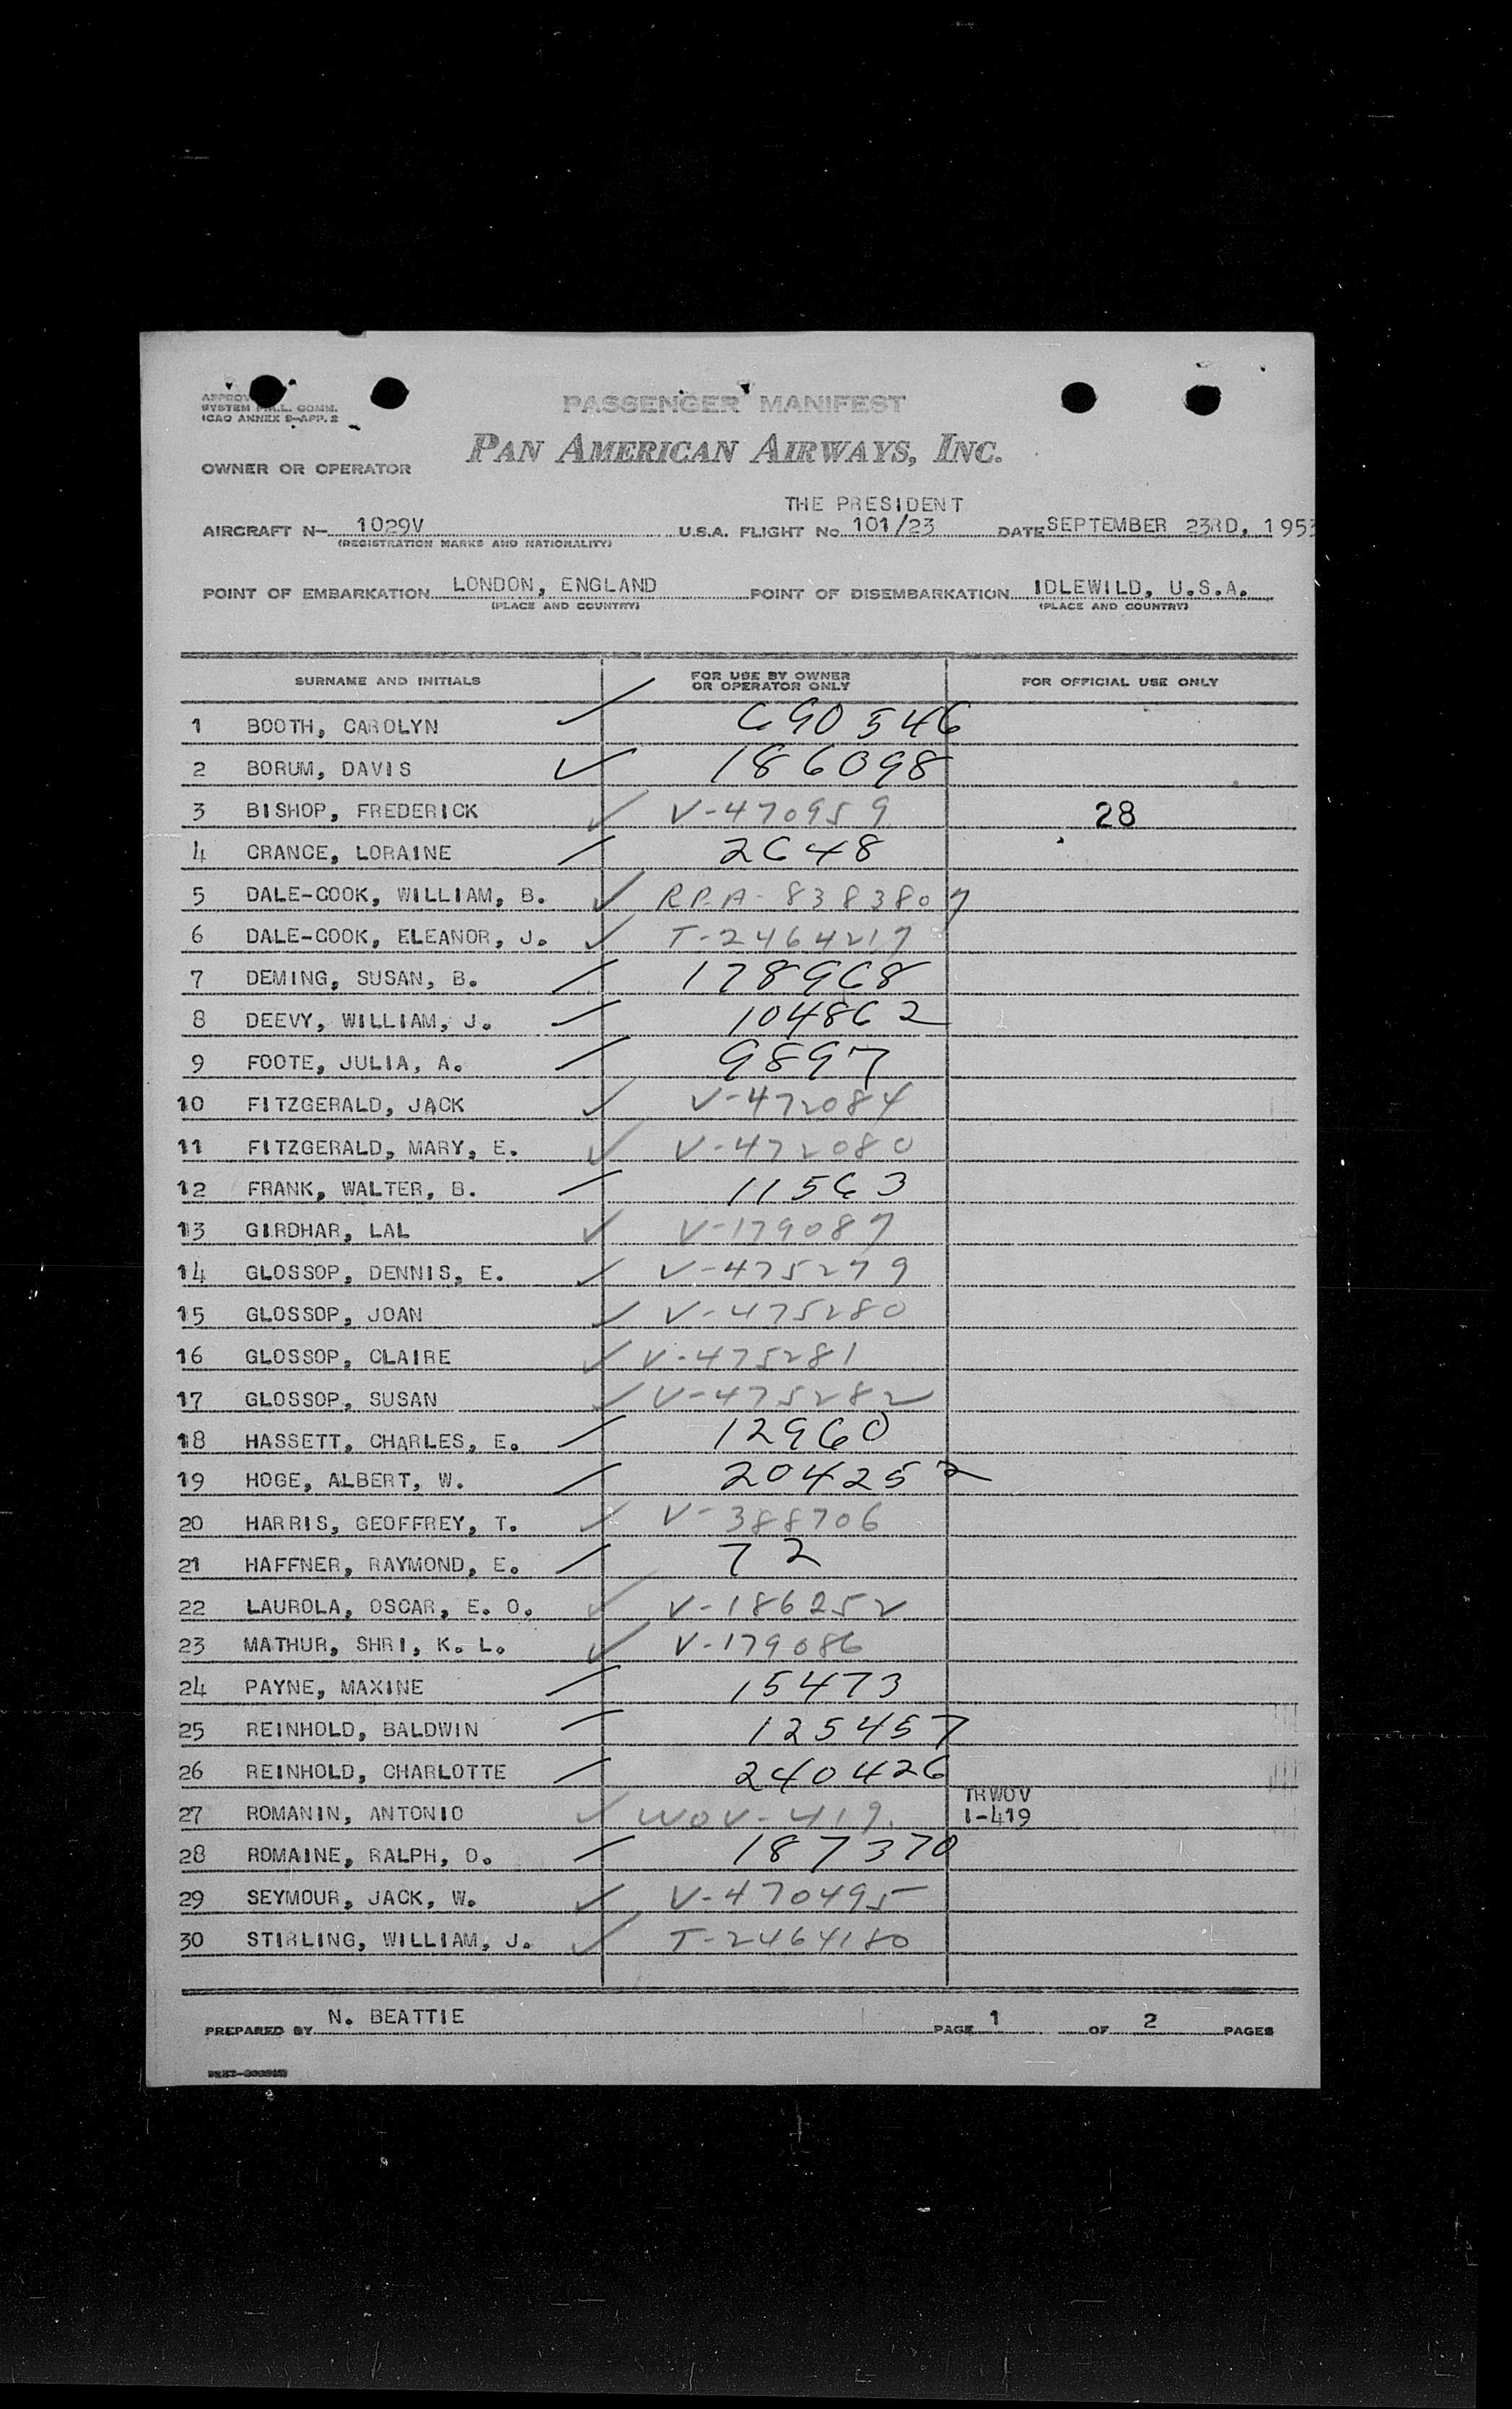 APPROV
SYSTEM P.R.L. COMM.
ICAO ANNEX 9-APP. 2
PASSENGER MANIFEST
PAN AMERICAN AIRWAYS, INC.
OWNER OR OPERATOR
THE PRESIDENT
AIRCRAFT N- 1029V U.S.A. FLIGHT No 101/23 DATE SEPTEMBER 23RD, 1953
(REGISTRATION MARKS AND NATIONALITY)
POINT OF EMBARKATION LONDON, ENGLAND POINT OF DISEMBARKATION IDLEWILD, U.S.A.
(PLACE AND COUNTRY) (PLACE AND COUNTRY)
SURNAME AND INITIALS FOR USE BY OWNER OR OPERATOR ONLY FOR OFFICIAL USE ONLY
1 BOOTH, CAROLYN 690546
2 BORUM, DAVIS 186098
3 BISHOP, FREDERICK V-470959 28
4 CRANCE, LORAINE 2648
5 DALE-COOK, WILLIAM, B. R.P.A- 8383807
6 DALE-COOK, ELEANOR, J. T-2464217
7 DEMING, SUSAN, B. 178968
8 DEEVY, WILLIAM, J. 104862
9 FOOTE, JULIA, A. 9897
10 FITZGERALD, JACK V-472084
11 FITZGERALD, MARY, E. V-472080
12 FRANK, WALTER, B. 11563
13 GIRDHAR, LAL V-179087
14 GLOSSOP, DENNIS, E. V-475279
15 GLOSSOP, JOAN V-475280
16 GLOSSOP, CLAIRE V-475281
17 GLOSSOP, SUSAN V-475282
18 HASSETT, CHARLES, E. 12960
19 HOGE, ALBERT, W. 204252
20 HARRIS, GEOFFREY, T. V-388706
21 HAFFNER, RAYMOND, E. 72
22 LAUROLA, OSCAR, E. O. V-186252
23 MATHUR, SHRI, K. L. V-179086
24 PAYNE, MAXINE 15473
25 REINHOLD, BALDWIN 125457
26 REINHOLD, CHARLOTTE 240426
TRWOV
27 ROMANIN, ANTONIO WOV-419. 1-419
28 ROMAINE, RALPH, O. 187370
29 SEYMOUR, JACK, W. V-470495
30 STIRLING, WILLIAM, J. T-2464180
PREPARED BY N. BEATTIE PAGE 1 OF 2 PAGES